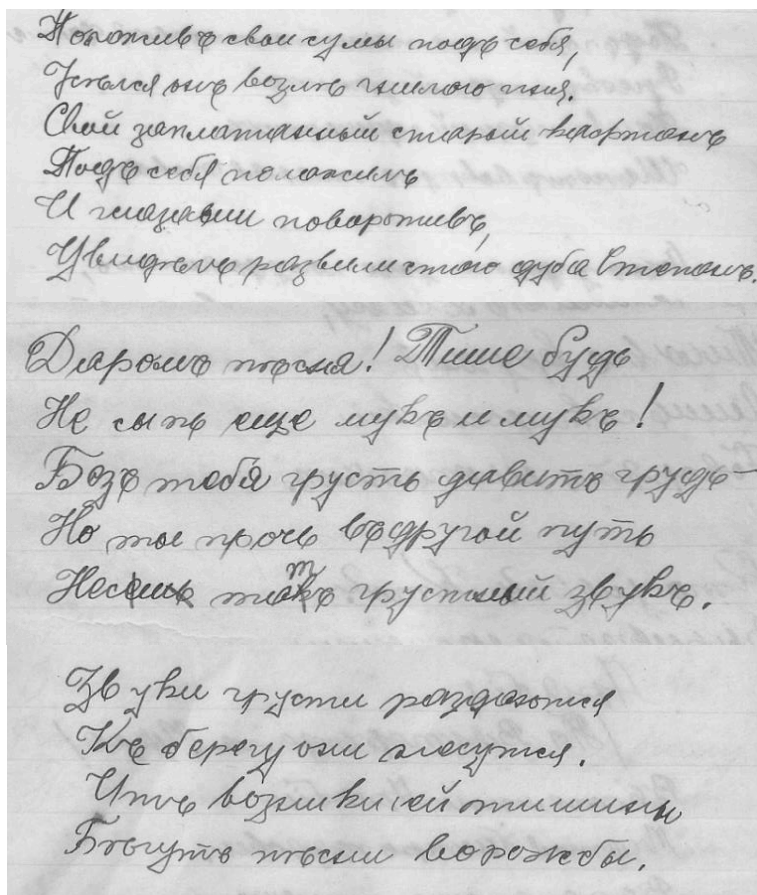 Положивъ свои сумы подъ себя,
Усѣлся онъ возлѣ гнилого пня.
Свой заплатанный старый кафтанъ
Подъ себя положилъ
И глазами поворотивъ,
Увидѣлъ развѣлистого дуба Степанъ.
Даромъ пѣсня! Тише будь
Не сыпь еще мукъ и мукъ!
Безъ тебя грусть давитъ грудь—
Но ты прочь въ другой путь
Неси тотъ грустный звукъ.
Звуки грусти раздаются
Къ берегу они несутся.
Ихъ возникшей тишины
Бѣгутъ пѣсни ворожбы.